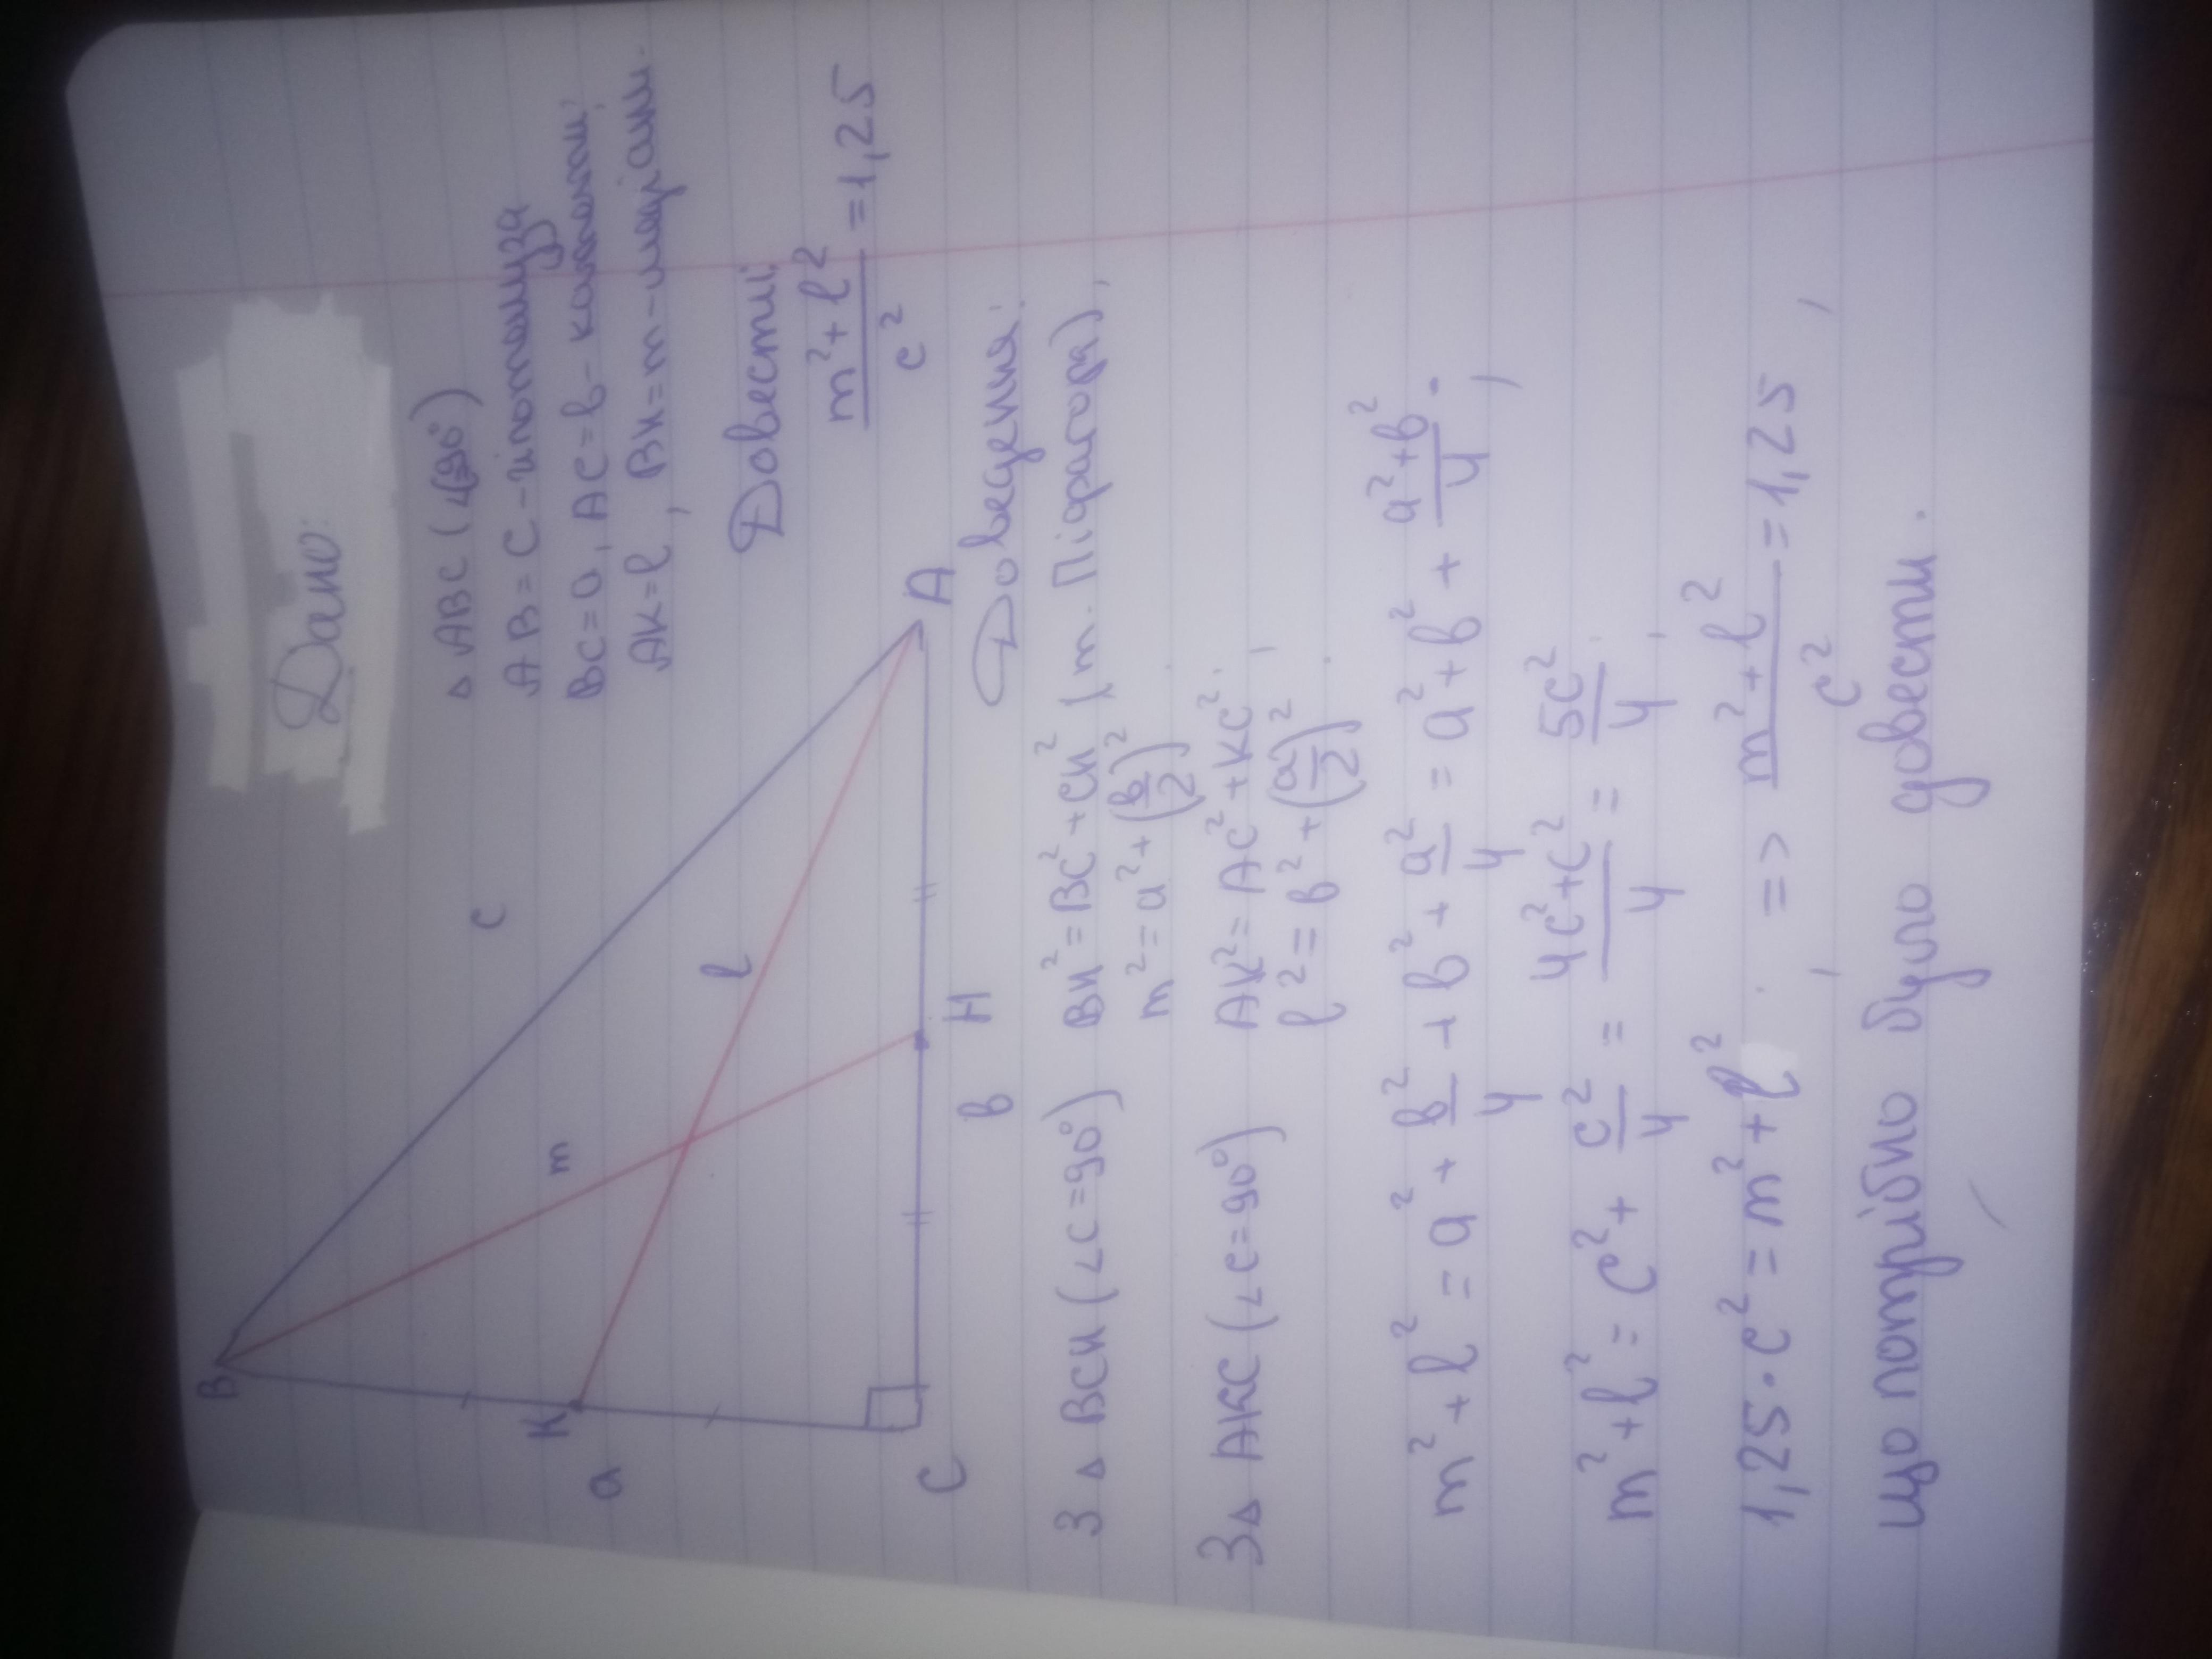 Дано:
△ ABC (∠C=90°)
AB = C - гіпотенуза
BC = a, AC = b - катети;
AK = l, BH = m - медіани.
Довести:
(m² + l²)/c² = 1,25
B
c
m
K
l
a
C
b
H
A
Доведення:
З △ BCH (∠C = 90°) BH² = BC² + CH² (т. Піфагора),
m² = a² + (b/2)²
З △ AKC (∠C = 90°) AK² = AC² + KC²;
l² = b² + (a/2)².
m² + l² = a² + b²/4 + b² + a²/4 = a² + b² + (a² + b²)/4;
m² + l² = c² + c²/4 = (4c² + c²)/4 = 5c²/4;
1,25 · c² = m² + l²; => (m² + l²)/c² = 1,25,
що потрібно було довести.